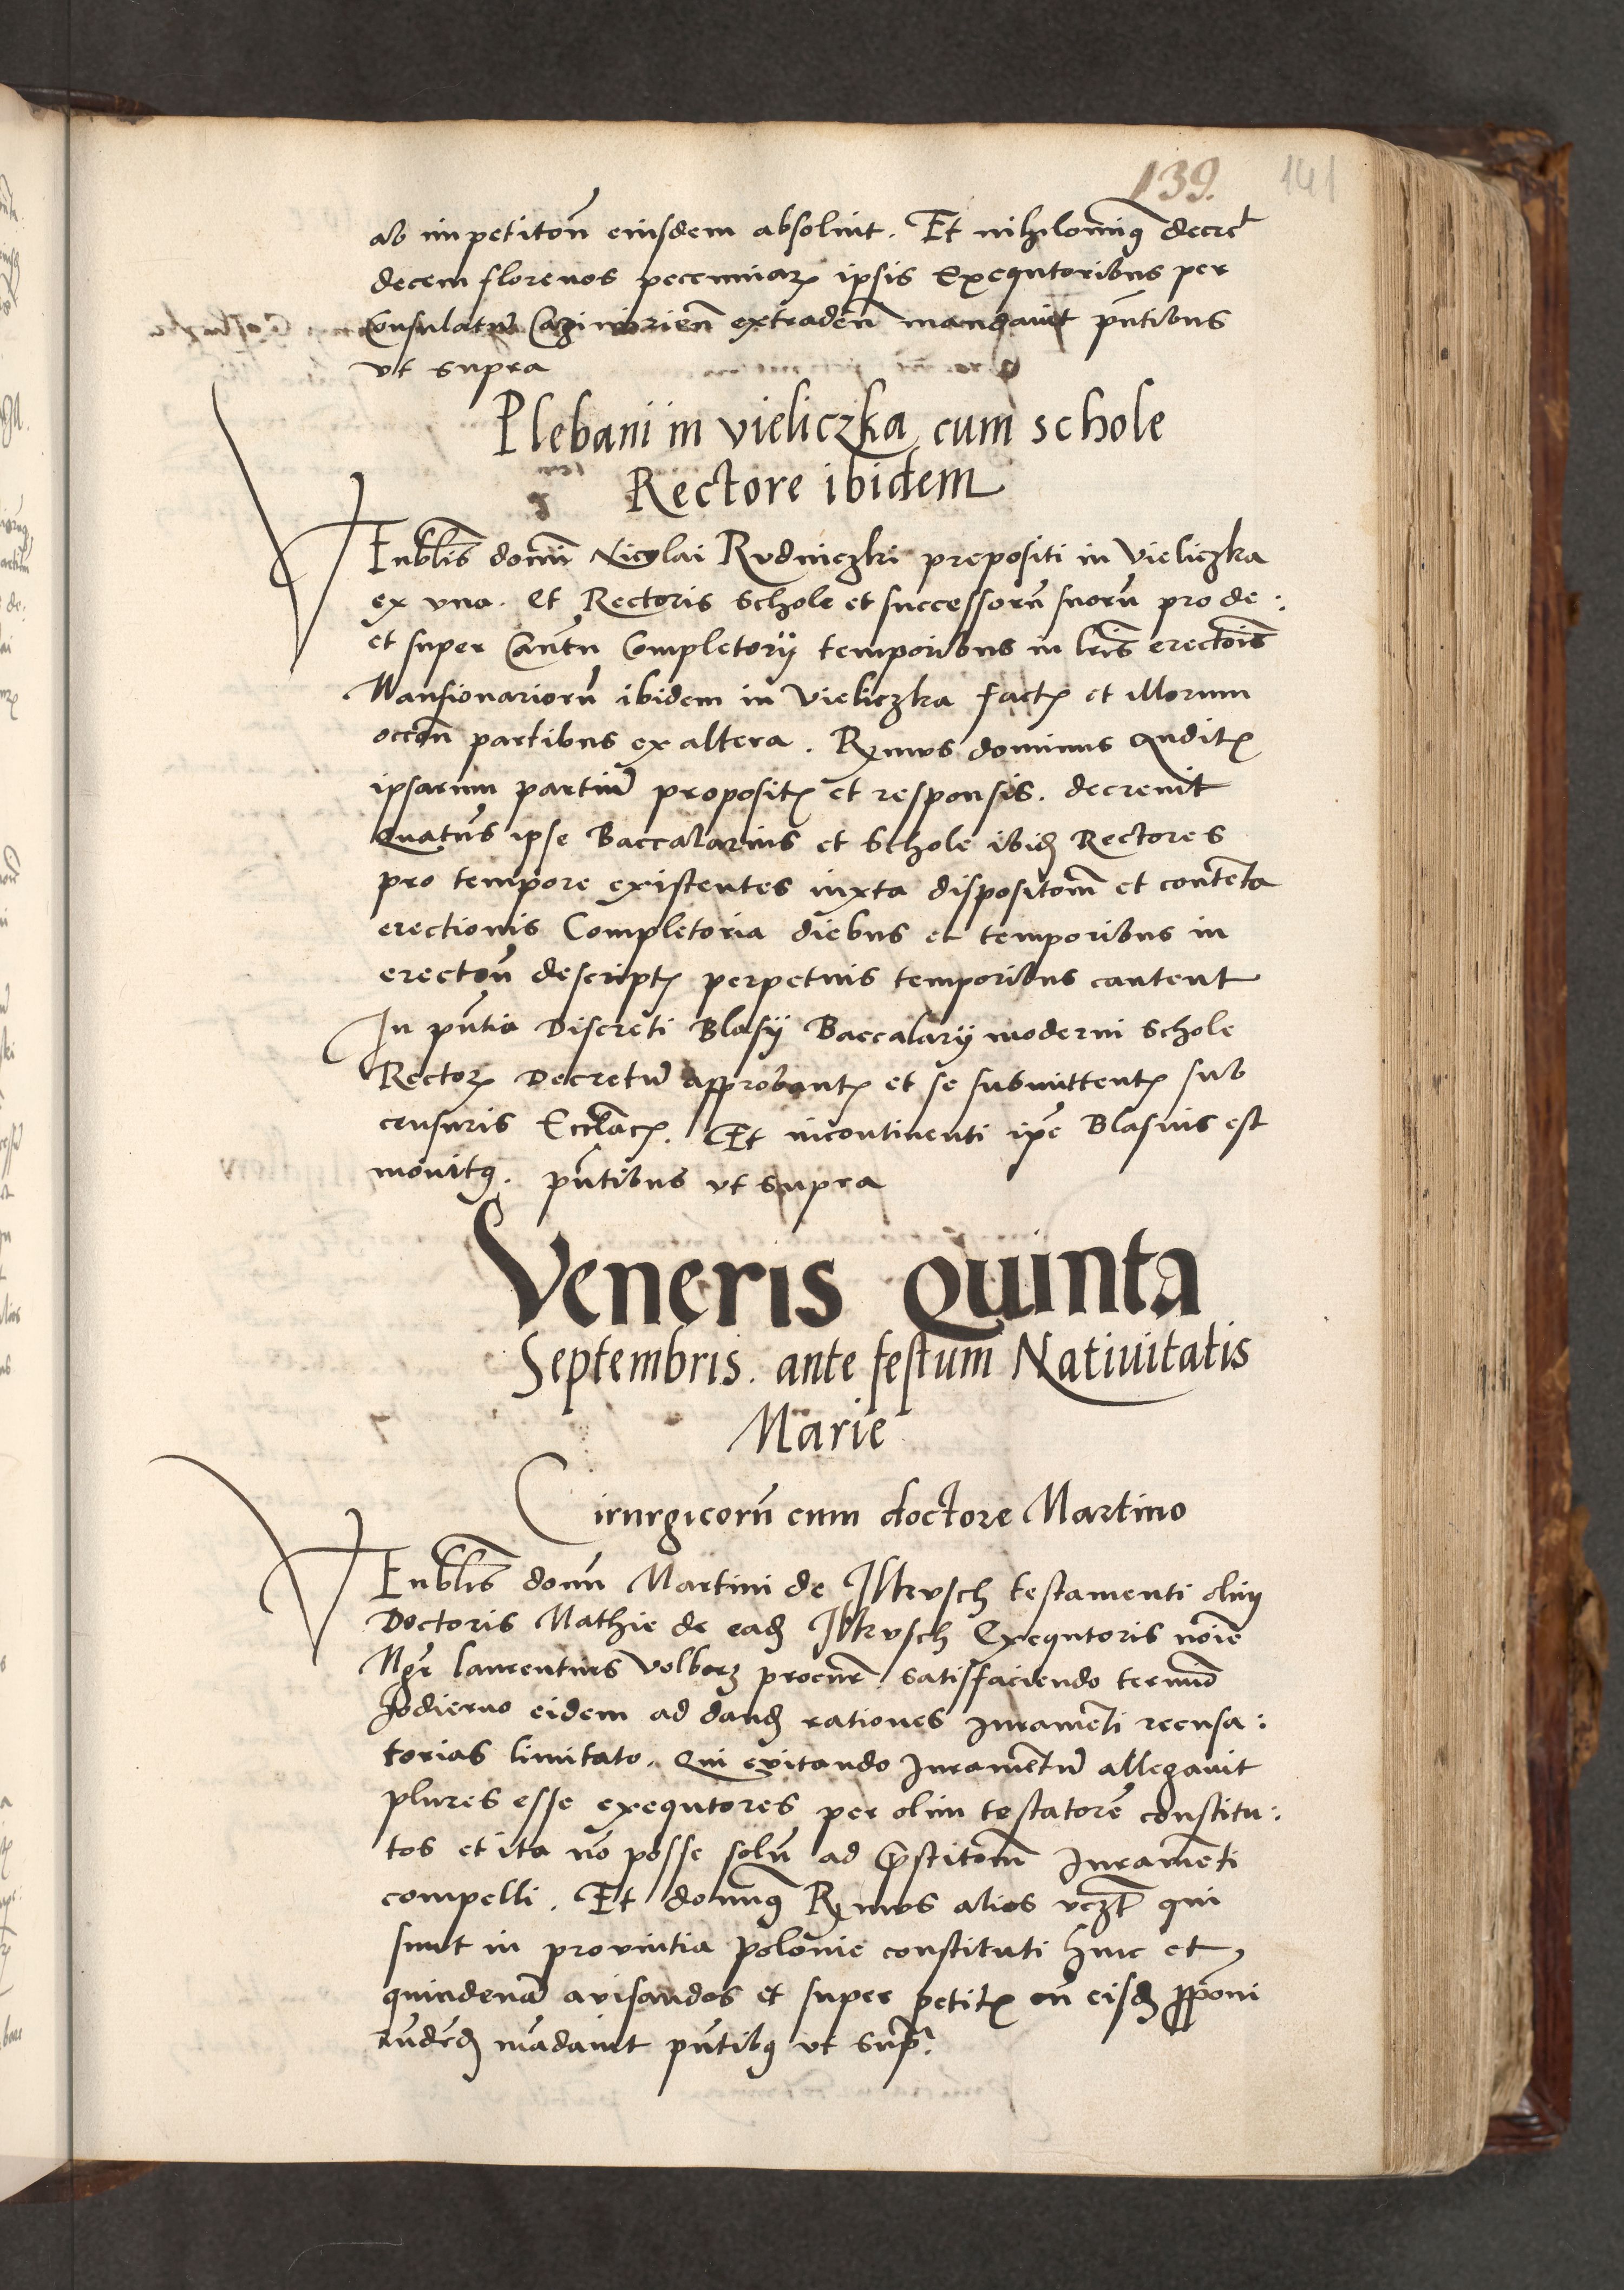 139. 141
ab impetitoñ eiusdem absoluit. Et nihilominꝯ decreᵗ
decem florenos pecuniaꝝ ipsis Exequtoribus per
Consulatũ Cazimirieñ extradeñ mandauit pñtibus
vt supra
Plebani in vieliczka cum schole
Rectore ibidem
VEnblĩs domĩ Nicolai Rudniczki prepositi in Vieliczka
ex vna. Et Rectoris Schole et successorũ suorũ pro de:
et super Cantu Completorij temporibus in lrĩs erectoĩs
Mansionariorũ ibidem in Vieliczka factꝭ et illorum
occoñ partibus ex altera. Rxmus dominus Auditꝭ
ipsarum partiũ propositꝭ et responsis. decreuit
Quatus̃ ipse Baccalarius et Schole ibid Rectores
pro tempore existentes iuxta dispositom̃ et contenta
erectionis Completoria diebus et temporibus in
erectoñ descriptꝭ perpetuis temporibus cantent
In pñtia Discreti Blasij Baccalarij moderni Schole
Rectoꝝ Decretũ approbantꝭ et se submittentꝭ sub
censuris Eccl̃acꝭ. Et incontinenti ip̃e Blasius est
monitꝯ. pñtibus vt supra
Veneris quinta
Septembris. ante festum Natiuitatis
Marie
Cirurgicorũ cum doctore Martino
VEnblĩs domĩ Martini de Ilkusch testamenti olim
Doctoris Mathie de ead Ilkusch Exequtoris noĩe
Mgr̃ laurentius Volborz procur̃ satisfaciendo termio
hodierno eidem ad dand rationes Iuramenti recusa:
torias limitato. Qui euitando Iuramentũ allegauit
plures esse exequtores per olim testatorẽ constitu:
tos et ita nõ posse solũ ad p̃stitom̃ Iuramẽti
compelli. Et domiꝯ Rxmus alios vczt̃ qui
sunt in prouintia polonie constituti hinc et
quindenã auisandos et super petitꝭ cũ eisd ꝓponi
mãdauit pñtibꝯ vt supᵃ.